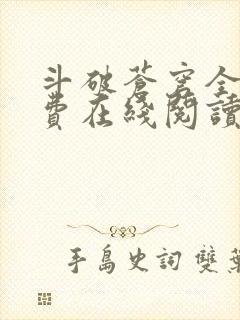 斗破蒼穹全
費在綫閱讀
手島史詞 雙葉